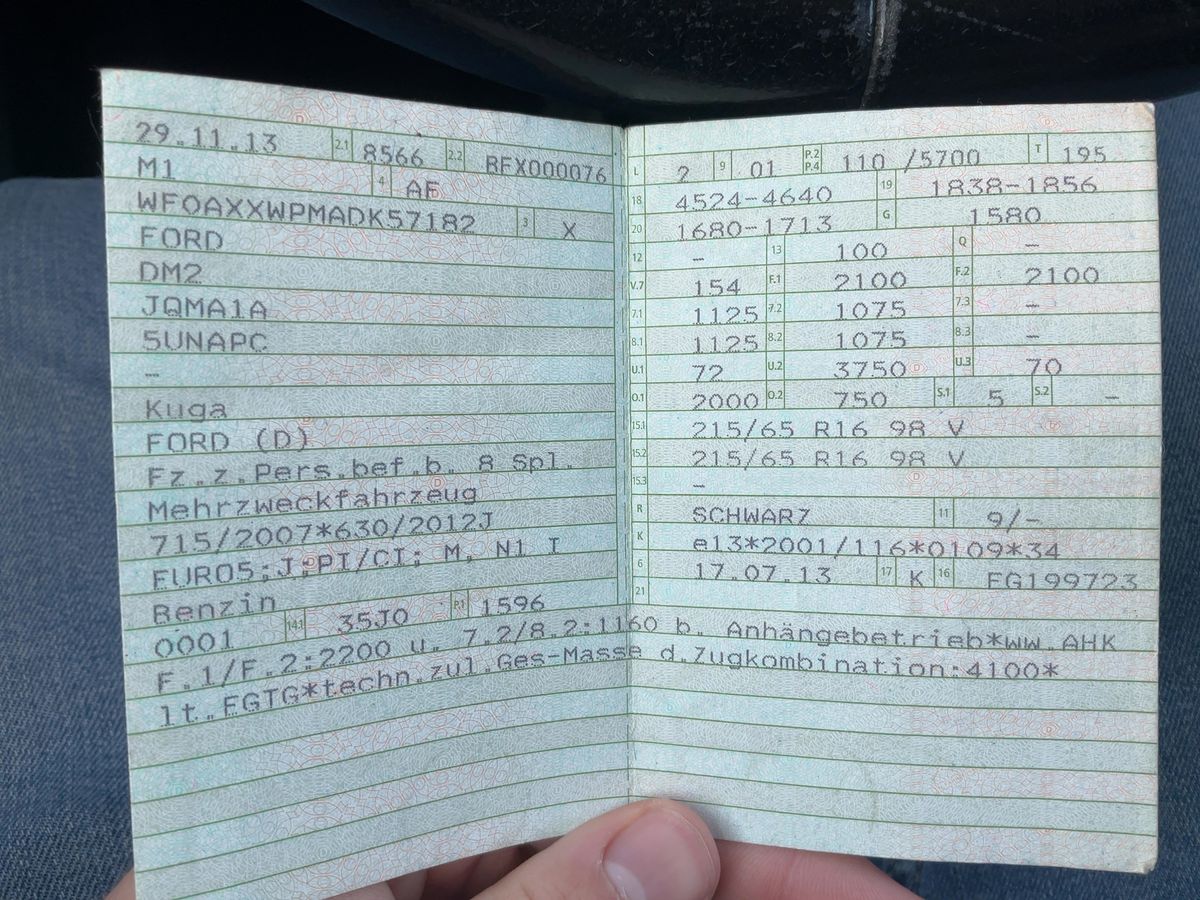 29.11.13 2.1 8566 2.2 BFX000076
M1 4 AF
WF0AXXWPMADK57182 3 X
FORD
DM2
JQMA1A
5UNAPC
–
Kuga
FORD (D)
Fz.z.Pers.bef.b. 8 Spl.
Mehrzweckfahrzeug
715/2007*630/2012J
EURO5;J;PI/CI; M, N1 I
Benzin
0001 14.1 35J0 P.1 1596
L 2 9 01 P.2 P.4 110 /5700 T 195
18 4524-4640 19 1838-1856
20 1680-1713 G 1580
12 – 13 100 Q –
V.7 154 F.1 2100 F.2 2100
7.1 1125 7.2 1075 7.3 –
8.1 1125 8.2 1075 8.3 –
U.1 72 U.2 3750 U.3 70
O.1 2000 O.2 750 S.1 5 S.2 –
15.1 215/65 R16 98 V
15.2 215/65 R16 98 V
15.3 –
R SCHWARZ 11 9/-
K e13*2001/116*0109*34
6 17.07.13 17 K 16 FG199723
21
F.1/F.2:2200 u. 7.2/8.2:1160 b. Anhängebetrieb*ww.AHK
lt.EGTG*techn.zul.Ges-Masse d.Zugkombination:4100*